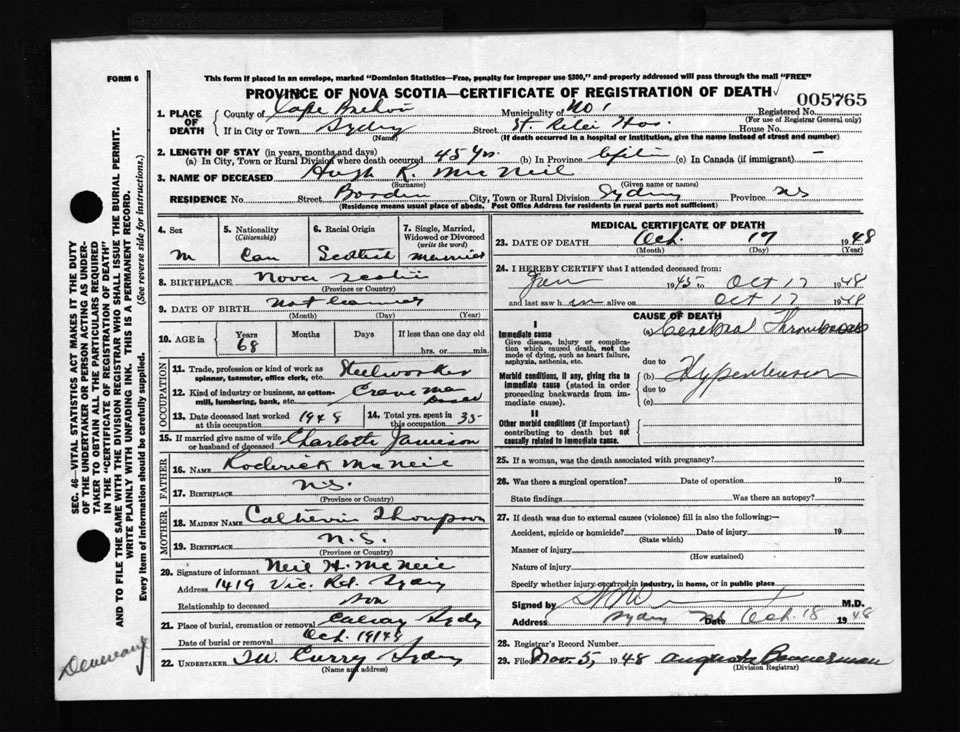 FORM 6
This form if placed in an envelope, marked "Dominion Statistics—Free, penalty for improper use $300," and properly addressed will pass through the mail "FREE"
PROVINCE OF NOVA SCOTIA—CERTIFICATE OF REGISTRATION OF DEATH
005765
1. PLACE OF DEATH
County of Cape Breton Municipality of No 1 Registered No.
(For use of Registrar General only)
If in City or Town Sydney Street St Rita Hos. House No.
(Name) (If death occurred in a hospital or institution, give the name instead of street and number)
2. LENGTH OF STAY (in years, months and days)
(a) In City, Town or Rural Division where death occurred 45 Yrs. (b) In Province Life (c) In Canada (if immigrant) –
3. NAME OF DECEASED Hugh R. McNeil
(Surname) (Given name or names)
RESIDENCE No. Street City, Town or Rural Division Sydney Province NS
(Residence means usual place of abode. Post Office Address for residents in rural parts not sufficient)
4. Sex M
5. Nationality (Citizenship) Can
6. Racial Origin Scottish
7. Single, Married, Widowed or Divorced (write the word) Married
8. BIRTHPLACE Nova Scotia
(Province or Country)
9. DATE OF BIRTH Not
(Month) (Day) (Year)
10. AGE in Years 68 Months Days If less than one day old
hrs. or min.
OCCUPATION
11. Trade, profession or kind of work as spinner, teamster, office clerk, etc. Steelworker
12. Kind of industry or business, as cotton-mill, lumbering, bank, etc. Crane man
13. Date deceased last worked at this occupation 1948
14. Total yrs. spent in this occupation 35
15. If married give name of wife or husband of deceased Charlotte Jamieson
FATHER
16. NAME Roderick McNeil
17. BIRTHPLACE N.S.
(Province or Country)
MOTHER
18. MAIDEN NAME Catherin Thompson
19. BIRTHPLACE N.S.
(Province or Country)
20. Signature of informant Neil H. McNeil
Address 1419 Vic. Rd. Sydney
Relationship to deceased son
21. Place of burial, cremation or removal Calvary Sydney
Date of burial or removal Oct. 19 1948
22. UNDERTAKER T.W. Curry Sydney
(Name and address)
MEDICAL CERTIFICATE OF DEATH
23. DATE OF DEATH Oct. 17 1948
(Month) (Day) (Year)
24. I HEREBY CERTIFY that I attended deceased from:
Jan 1945 to Oct 17 1948
and last saw him alive on Oct 17 1948
CAUSE OF DEATH
I
Immediate cause (a) Cerebral Thrombosis
Give disease, injury or complication which caused death, not the mode of dying, such as heart failure, asphyxia, asthenia, etc.
due to
Morbid conditions, if any, giving rise to immediate cause (stated in order proceeding backwards from immediate cause).
(b) Hypertension
due to
(c)
II
Other morbid conditions (if important) contributing to death but not causally related to immediate cause.
25. If a woman, was the death associated with pregnancy?
26. Was there a surgical operation? Date of operation 19
State findings Was there an autopsy?
27. If death was due to external causes (violence) fill in also the following:—
Accident, suicide or homicide? Date of injury 19
(State which)
Manner of injury
(How sustained)
Nature of injury
Specify whether injury occurred in industry, in home, or in public place
Signed by M.D.
Address Sydney NS Date Oct. 18 1948
28. Registrar's Record Number
29. Filed Nov. 5, 1948 Augusta Bannerman
(Division Registrar)
SEC. 46—VITAL STATISTICS ACT MAKES IT THE DUTY
OF THE UNDERTAKER OR PERSON ACTING AS UNDER-
TAKER TO OBTAIN ALL THE PARTICULARS REQUIRED
IN THE "CERTIFICATE OF REGISTRATION OF DEATH"
AND TO FILE THE SAME WITH THE DIVISION REGISTRAR WHO SHALL ISSUE THE BURIAL PERMIT.
WRITE PLAINLY WITH UNFADING INK. THIS IS A PERMANENT RECORD.
Every item of information should be carefully supplied. (See reverse side for instructions.)